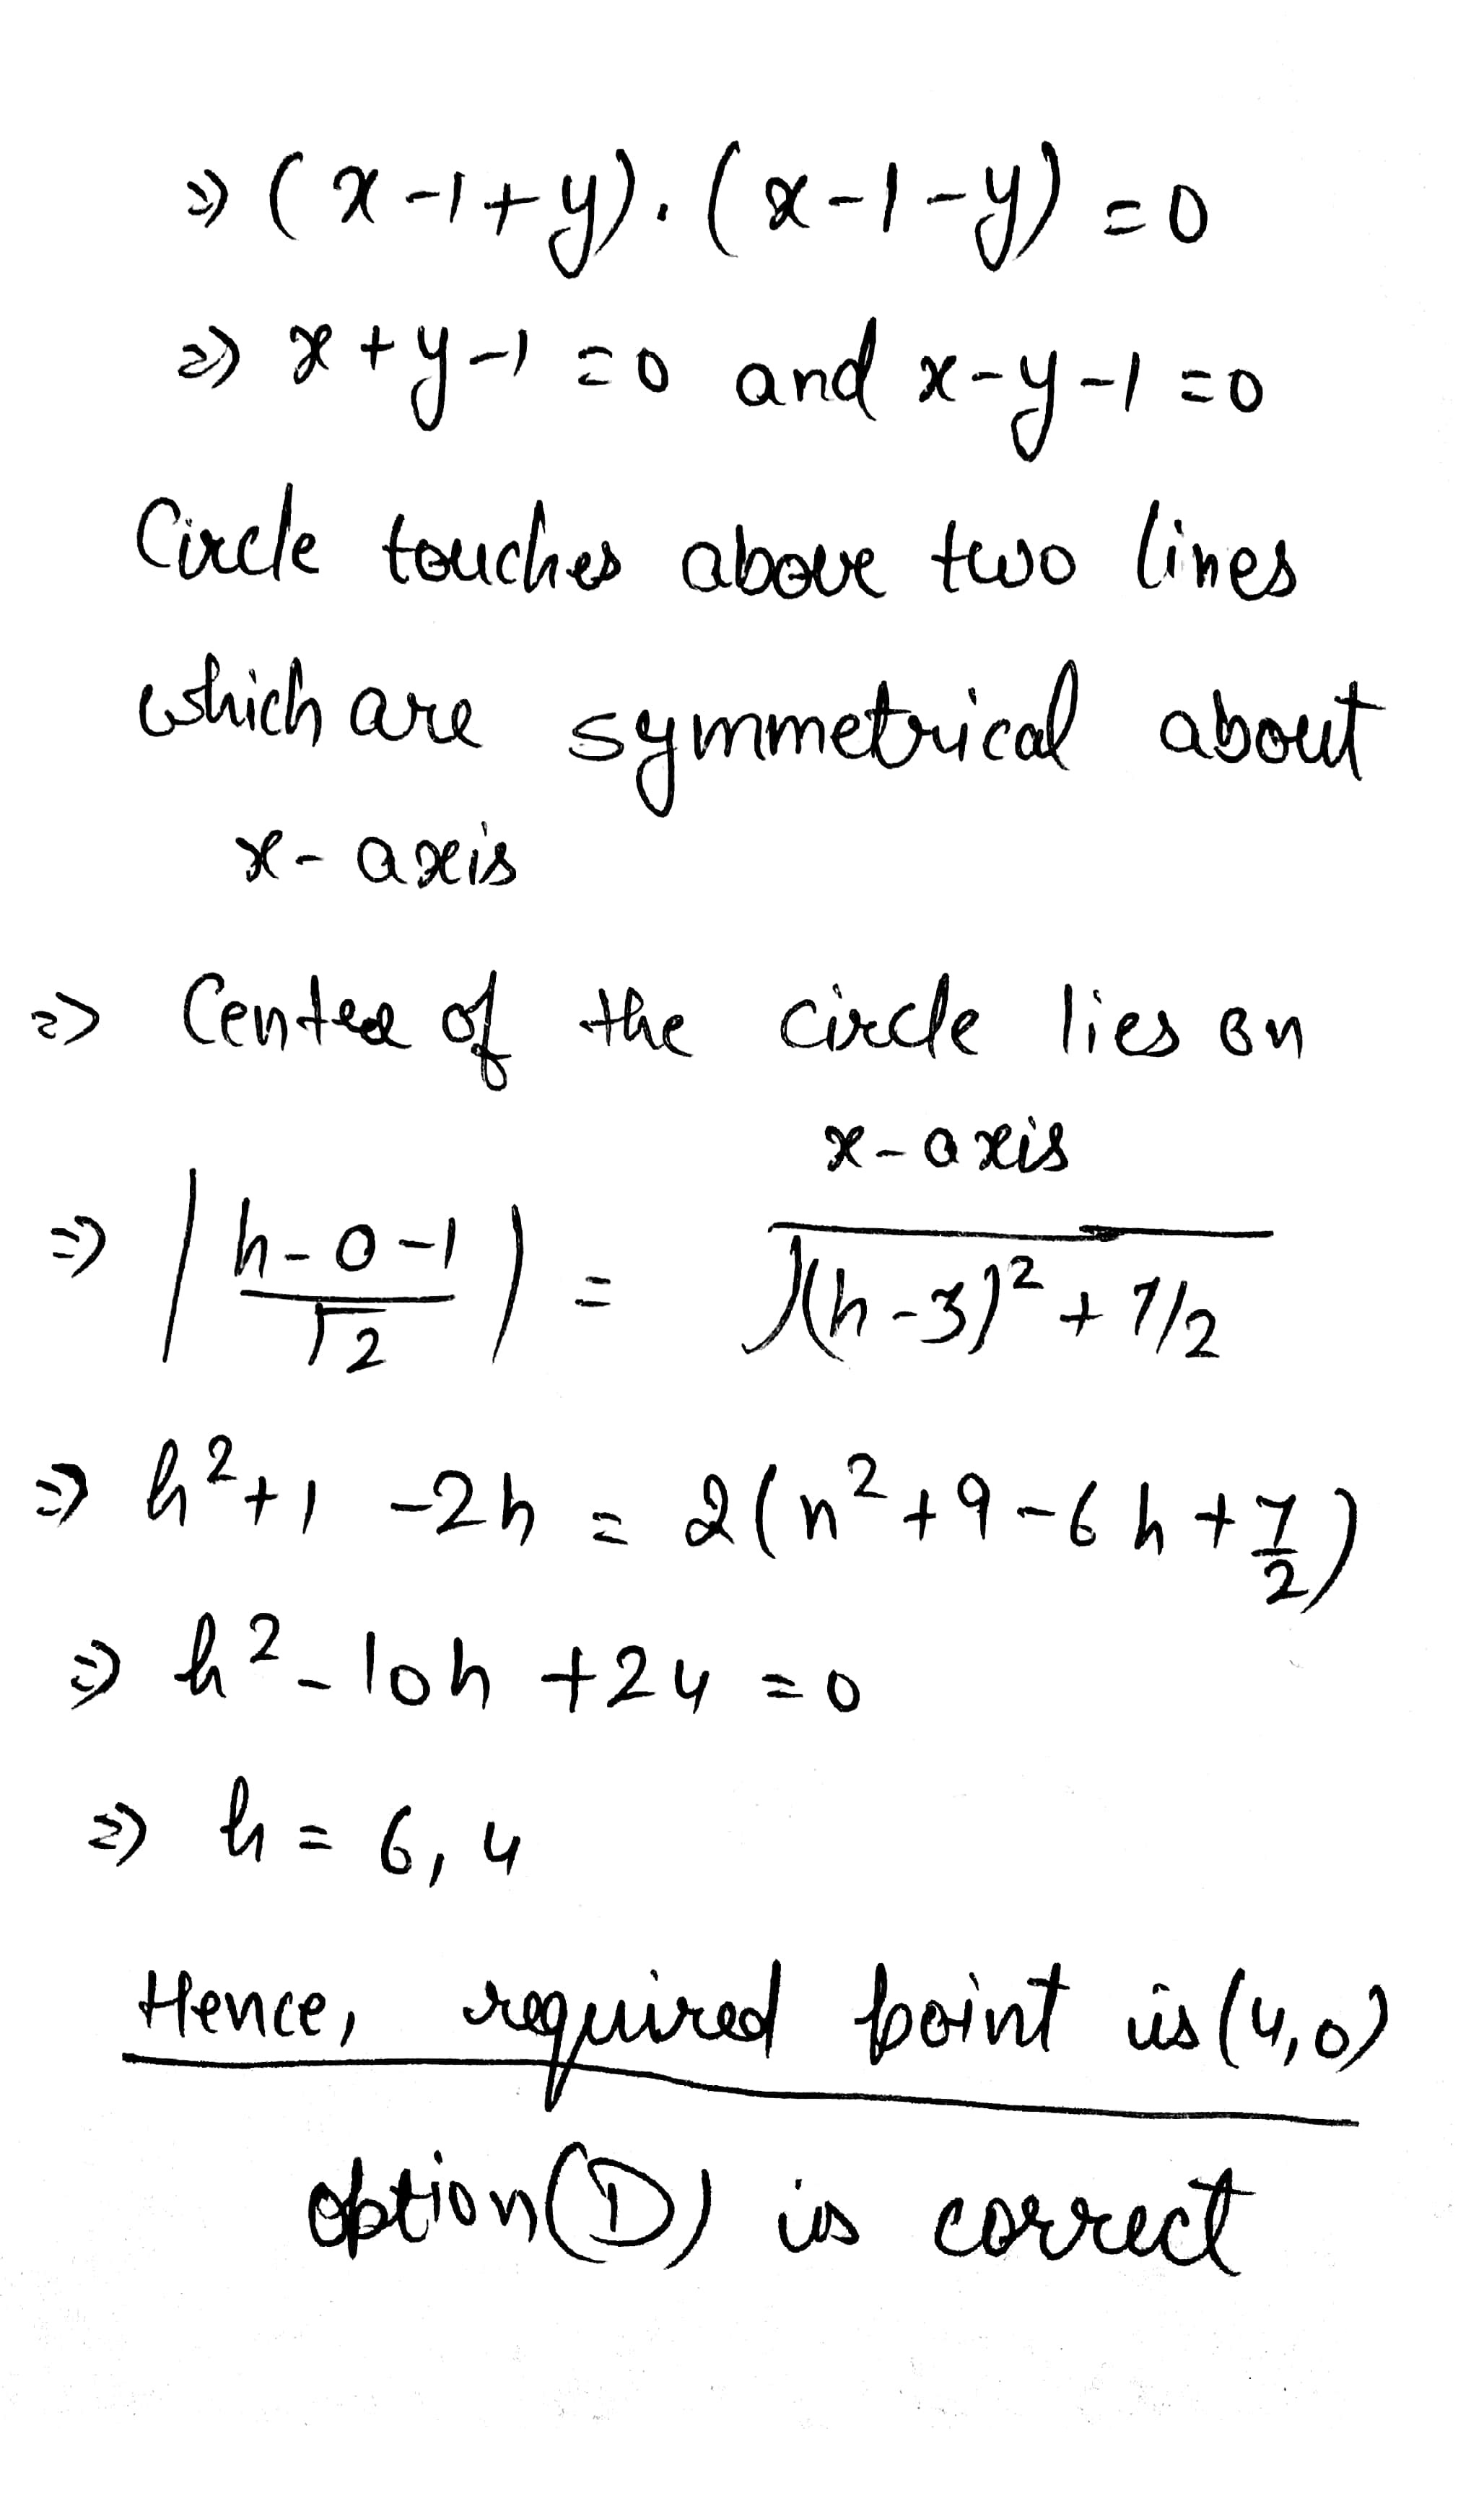 ⇒ (x-1+y).(x-1-y) = 0
⇒ x+y-1 = 0 and x-y-1 = 0
Circle touches above two lines
which are symmetrical about
x-axis
⇒ Centre of the circle lies on
x-axis
⇒ |(h-0-1)/√2| = √((h-3)² + 7/2)
⇒ h²+1 -2h = 2(h²+9-6h+7/2)
⇒ h²-10h +24 = 0
⇒ h = 6, 4
Hence, required point is (4,0)
option (D) is correct